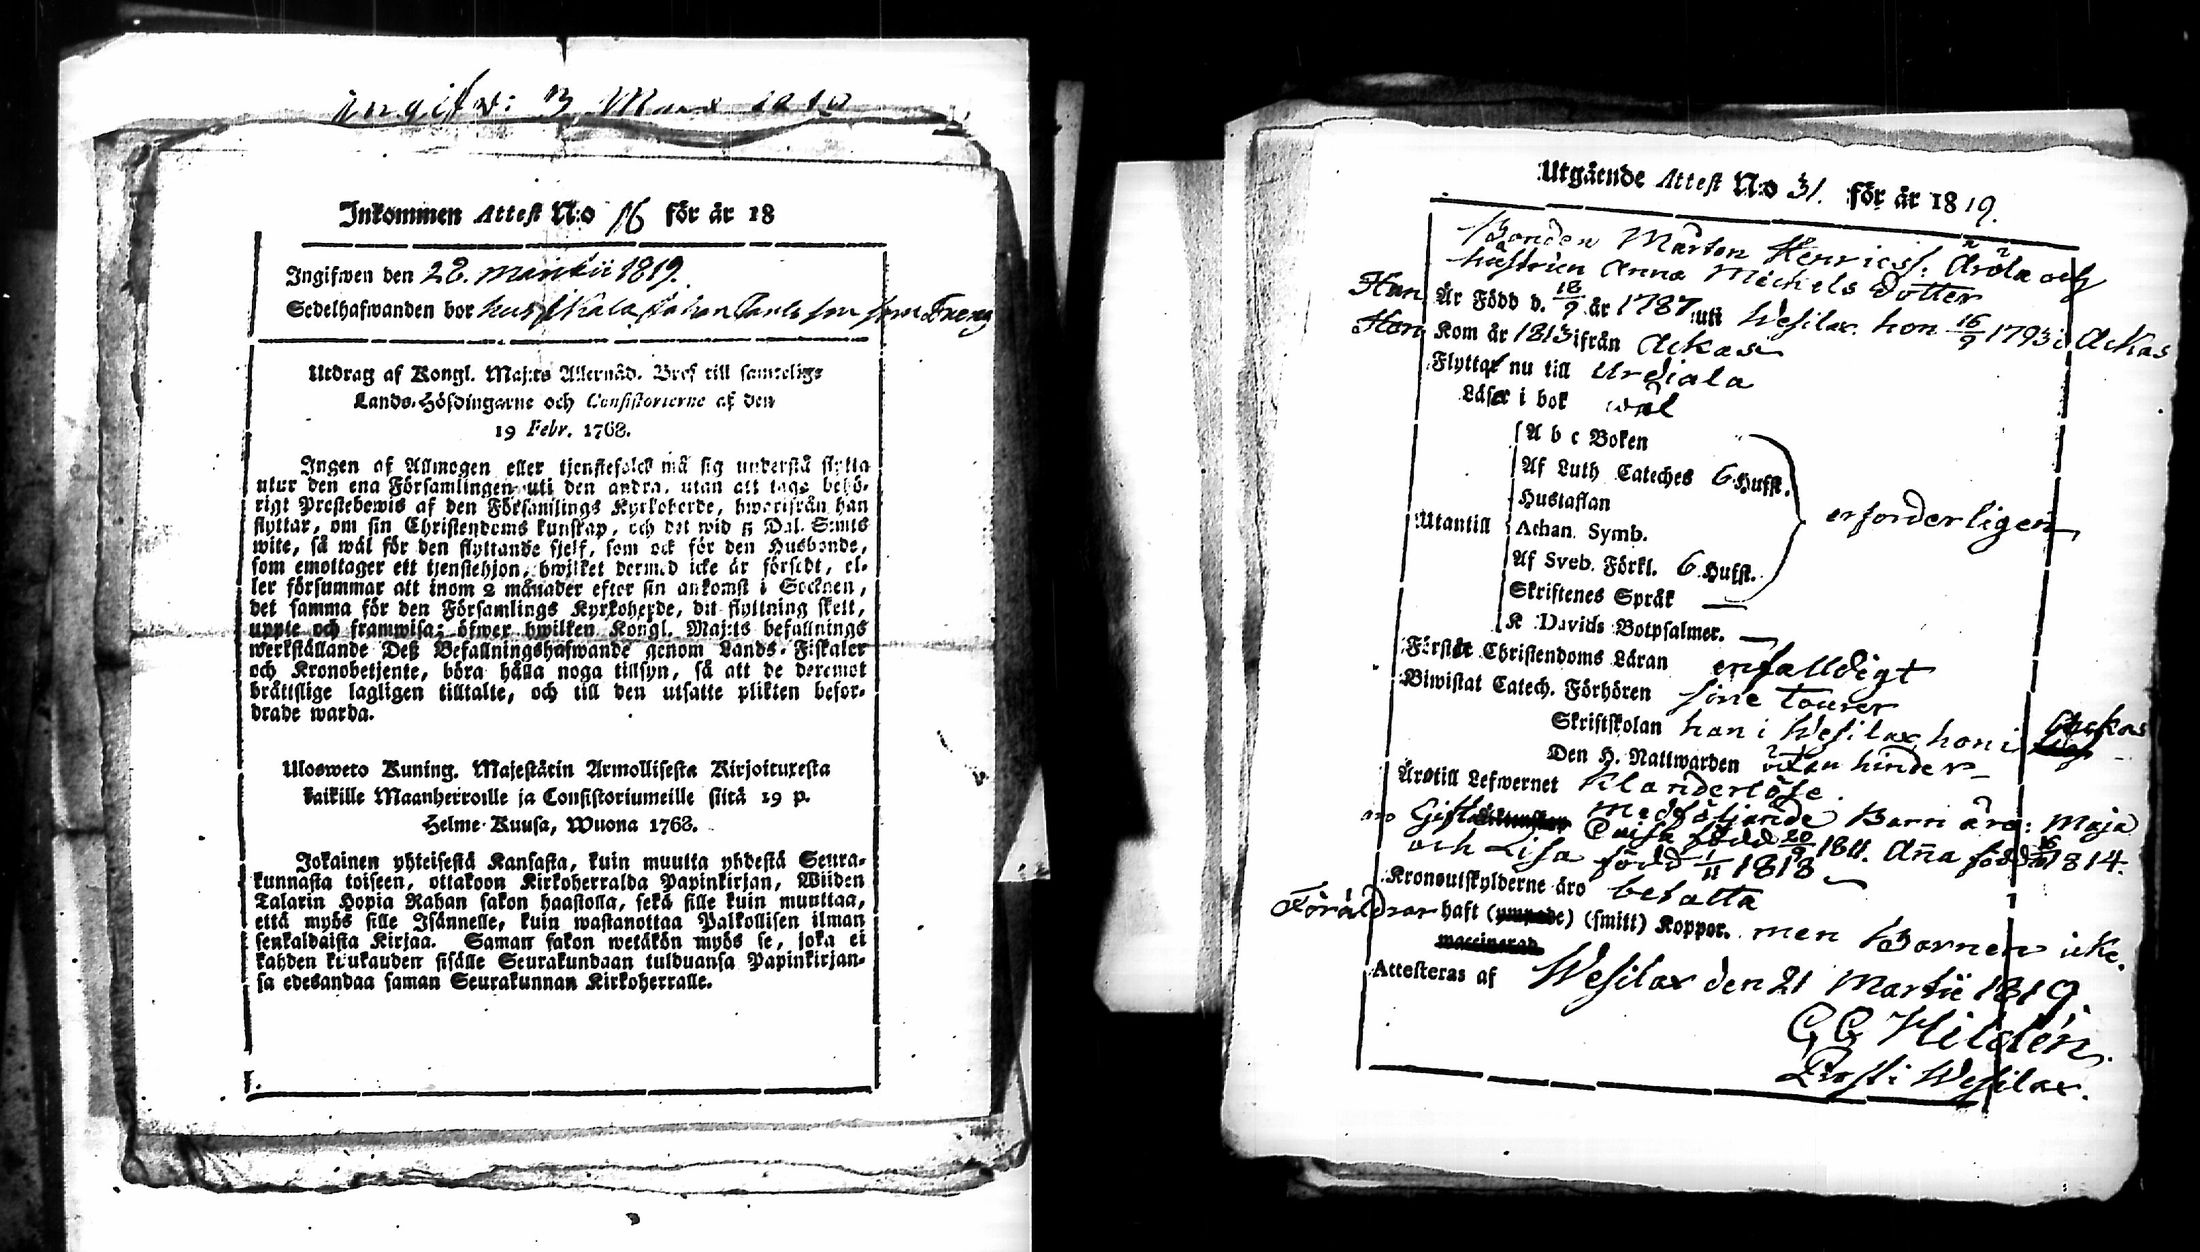 ingifw: 3 Mars
Inkommen Attest N:o 16 för år 18
Ingifwen den 28. Martii 1819.
Sedelhafwanden bor hus Johan som
Utdrag af Kongl. Maj:ts Allernåd. Bref till samtelige
Lands-Höfdingarne och Consistorierne af den
19 Febr. 1768.
Ingen af Allmogen eller tjenstefolck må sig understå flytta
utur den ena Församlingen uti den andra, utan att taga behö-
rigt Prestebewis af den Församlings Kyrkoherde, hwarifrån han
flyttar, om sin Christendoms kunskap, och det wid 5 Dal. S:mts
wite, så wäl för den flyttande sjelf, som ock för den Husbonde,
som emottager ett tjenstehjon, hwilket dermed icke är försedt, el-
ler försummar att inom 2 månader efter sin ankomst i Socknen,
det samma för den Församlings Kyrkoherde, dit flyttning skett,
uppte och framwisa; öfwer hwilken Kongl. Maj:ts befallnings
werkställande Deß Befallningshafwande genom Lands-Fiskaler
och Kronobetjente, böra hålla noga tillsyn, så att de deremot
bråttslige lagligen tilltalte, och till den utsatte plikten befor-
drade warda.
Ulosweto Kuning. Majestätin Armollisesta Kirjoituxesta
kaikille Maanherroille ja Consistoriumeille siitä 19 p.
Helme-Kuusa, Wuona 1768.
Jokainen yhteisestä Kansasta, kuin muutta yhdestä Seura-
kunnasta toiseen, ottakoon Kirkoherralda Papinkirjan, Wiiden
Talarin Hopia Rahan sakon haastolla, sekä sille kuin muuttaa,
että myös sille Isännelle, kuin wastanottaa Palkollisen ilman
senkaldaista Kirjaa. Saman sakon wetäkön myös se, joka ei
kahden kuukauden sisälle Seurakundaan tulduansa Papinkirjan-
sa edesandaa saman Seurakunnan Kirkoherralle.
Utgående Attest N:o 31. för år 1819.
Bonden Mårten Henricss: Arola och
hustrun Anna Michels Dotter
Han Är Född d. 18/9 år 1787 uti Wesilax. hon 16/9 1793 i Ackas
Hon Kom år 1813 ifrån Ackas
Flyttar nu till Urdiala
Läser i bok wäl
A b c Boken
Af Luth Cateches 6 Hufst.
Hustaflan
Utantill Athan. Symb. erforderligen
Af Sveb. Förkl. 6 Hufst.
Skriftenes Språk —
K Davids Botpsalmer. —
Förstår Christendoms Läran enfalldigt
Biwistat Catech. Förhören sine tourer
Skriftskolan han i Wesilax, hon i Ackas
Den H. Nattwarden utan hinder
Äro till Lefwernet Klanderlöse
Gift medföljande Barn äro: Maja
Caisa född 20/9 1811. Aña född 1814.
och Lisa född 1/11 1818
Kronoutskylderne äro betalta
Föräldrar haft (ympade) (smitt) Koppor. men Barnen icke.
waccinerad
Attesteras af Wesilax den 21 Martii 1819.
G G Hildén
Prost i Wesilax.